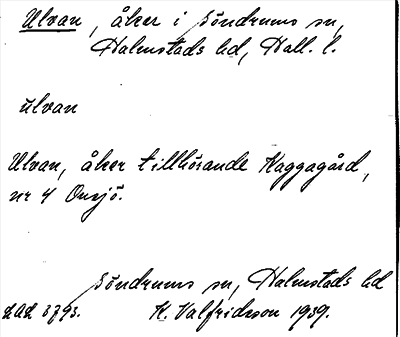 Ulvan, åker i Söndrums sn,
Halmstads hd, Hall. l.
ulvan
Ulvan, åker tillhörande Kaggagård,
nr 4 Onsjö.
Söndrums sn, Halmstads hd
K. Valfridsson 1939.